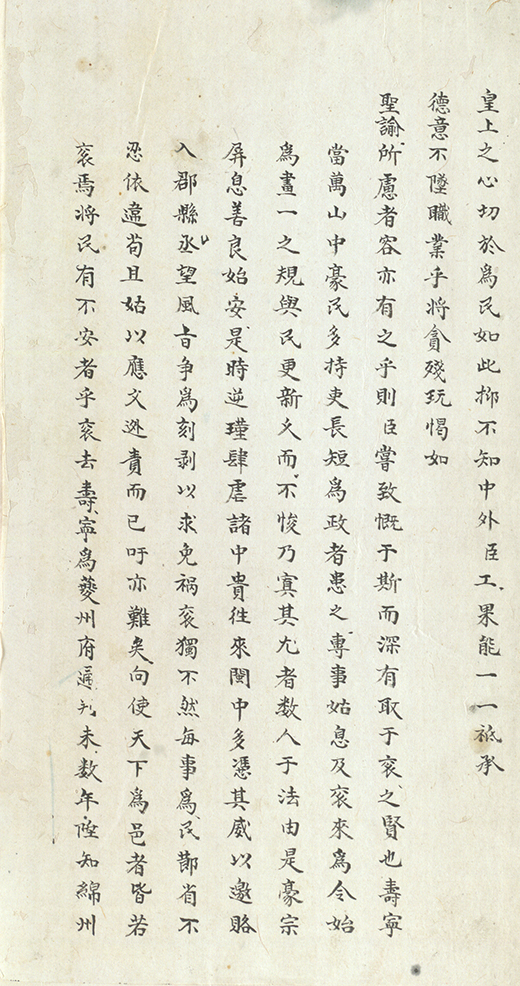 皇上之心切於爲民如此抑不知中外臣工果能一一祗承
德意不墜職業乎將貪殘玩愒如
聖諭所慮者容亦有之乎則臣嘗致慨于斯而深有取于衮之賢也壽寧
當萬山中豪民多持吏長短爲政者患之專事姑息及衮來爲令始
爲畫一之規與民更新久而不悛乃寘其尤者数人于法由是豪宗
屏息善良始安是時逆瑾肆虐諸中貴往來閩中多憑其威以邀賂
入郡縣丞望風旨争爲刻剥以求免禍衮獨不然每事爲民節省不
忍依違苟且姑以應文逃責而已吁亦難矣向使天下爲邑者皆若
衮焉將民有不安者乎衮去壽寧爲夔州府通判未数年陞知綿州